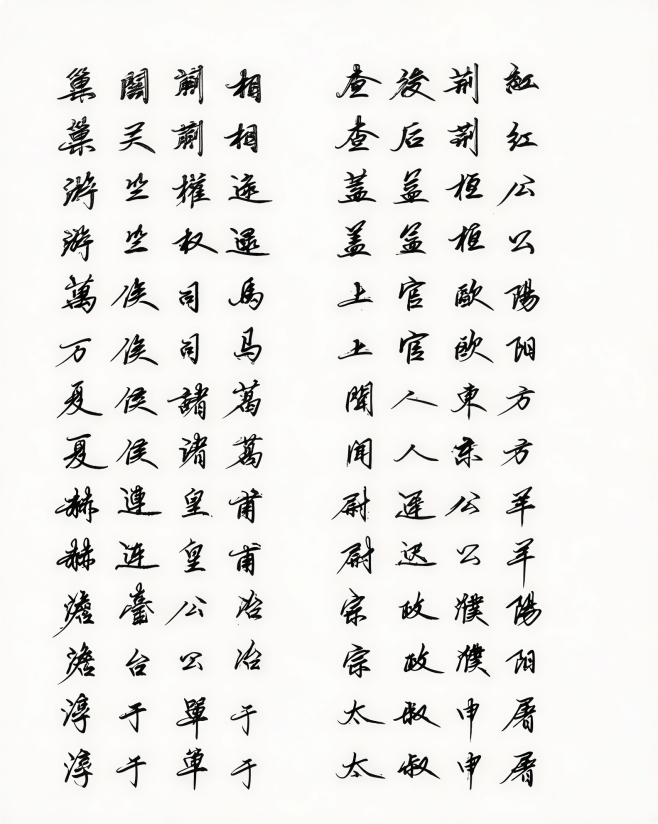 巢關蒯相 查後荊紅
巢关蒯相 查后荆红
游竺權逯 蓋益桓公
游竺权逯 盖益桓公
萬俟司馬 上官歐陽
万俟司马 上官欧阳
夏侯諸葛 聞人東方
夏侯诸葛 闻人东方
赫連皇甫 尉遲公羊
赫连皇甫 尉迟公羊
澹臺公冶 宗政濮陽
澹台公冶 宗政濮阳
淳于單于 太叔申屠
淳于单于 太叔申屠